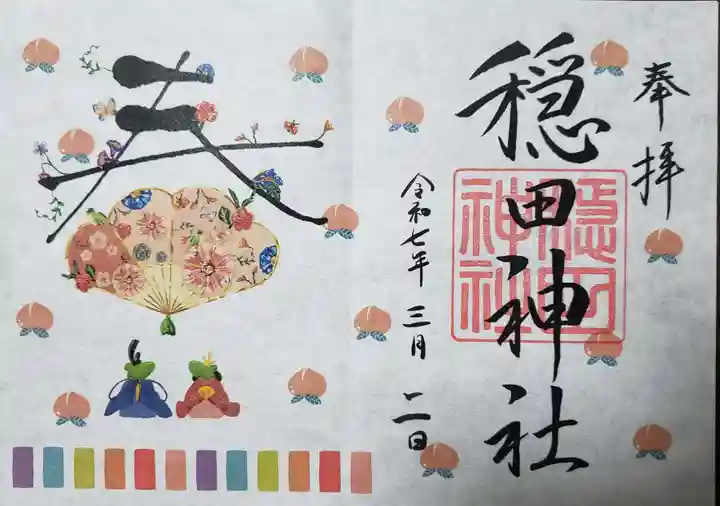 奉拝
穏田神社
隠田
神社
令和七年 三月 二日
春